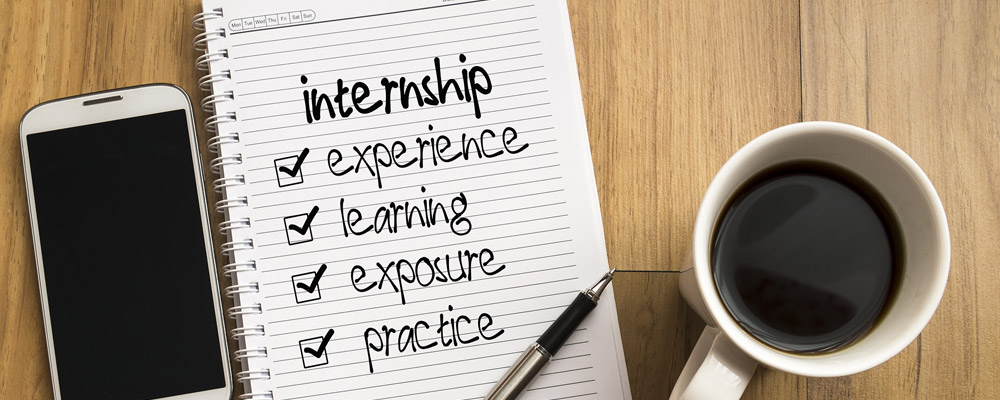 Mon Tue Wed Thu Fri Sat Sun
internship
experience
learning
exposure
practice